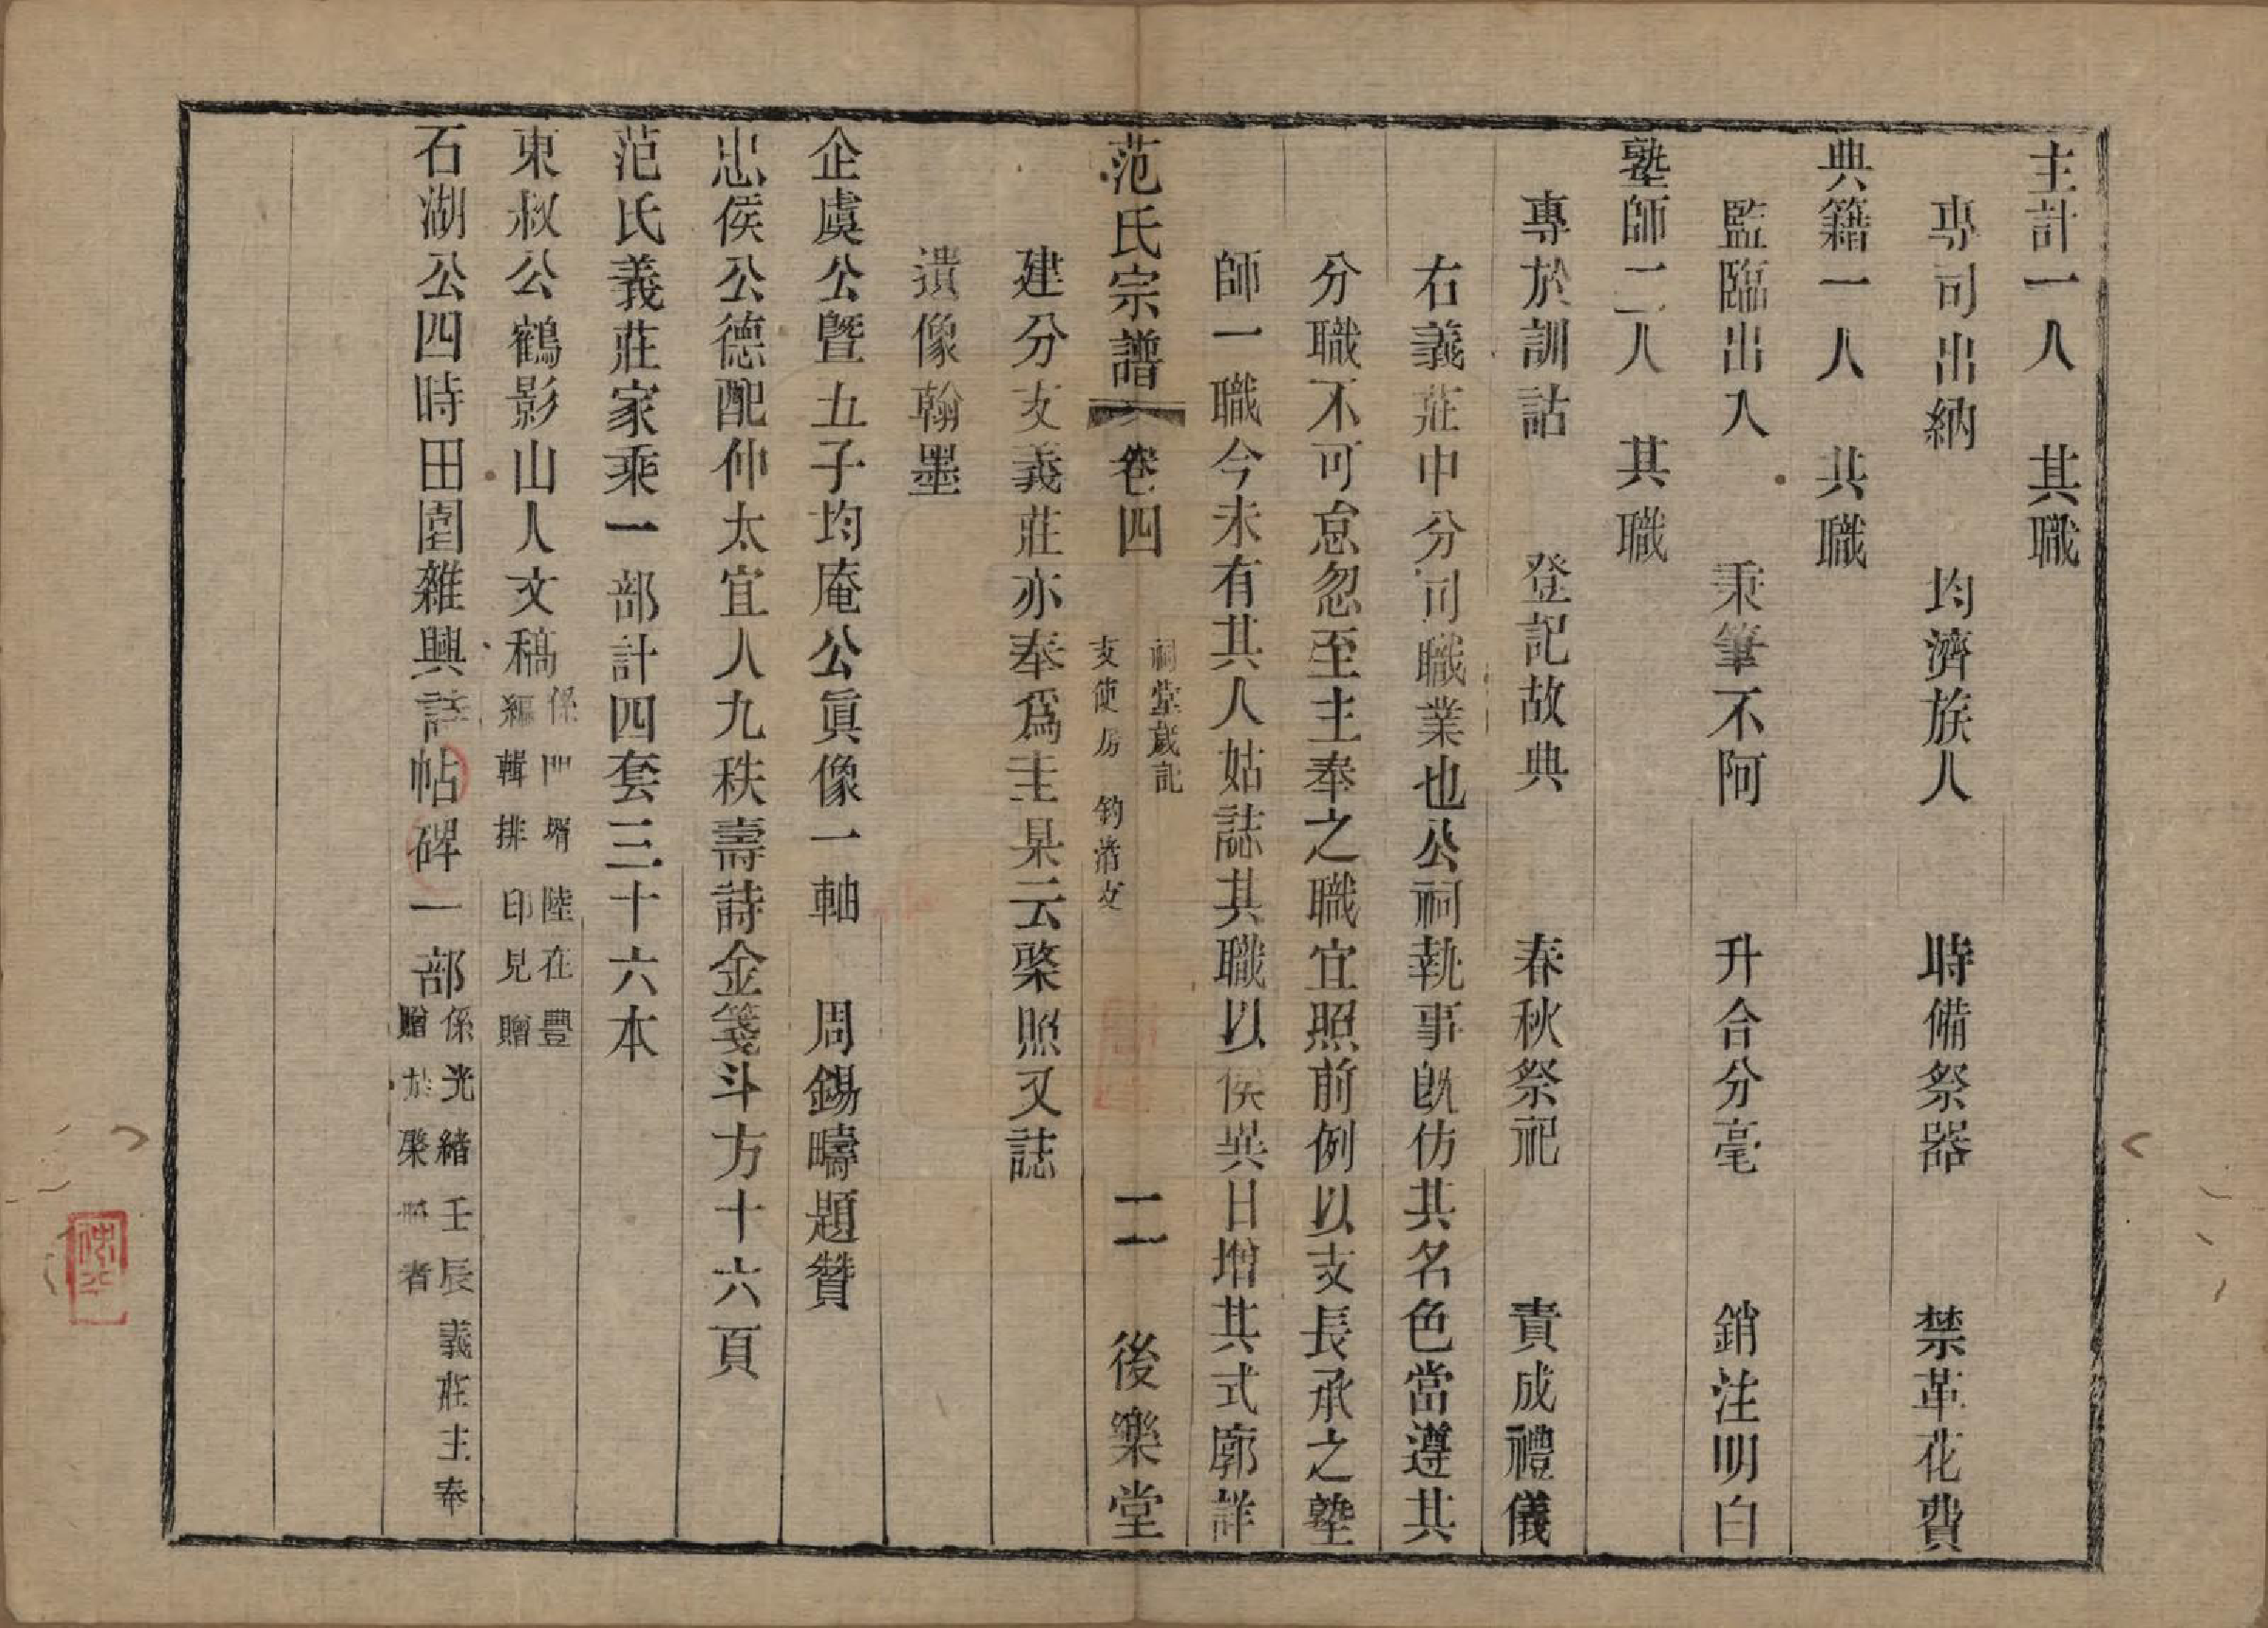 主計一人　其職
專司出納　均濟族人　時備祭器　禁革花費
典籍一人　其職
監臨出入　秉筆不阿　升合分毫　銷注明白
塾師二人　其職
專於訓詁　登記故典　春秋祭祀　責成禮儀
右義莊中分司職業也公祠執事既仿其名色當遵其
分職不可怠忽至主奉之職宜照前例以支長承之塾
師一職今未有其人姑誌其職以俟異日增其式廓詳
范氏宗譜　卷四　祠堂歲記
支使房　鈞滸支　二　後樂堂
建分支義莊亦奉爲主杲云棨照又誌
遺像翰墨
企虞公曁五子均庵公眞像一軸　周錫疇題贊
忠侯公德配仲太宜人九秩壽詩金箋斗方十六頁
范氏義莊家乘一部計四套三十六本
東叔公鶴影山人文稿係門壻陸在豐
編輯排印見贈
石湖公四時田園雜興詩帖碑一部係光緒壬辰義莊主奉
贈於棨照者